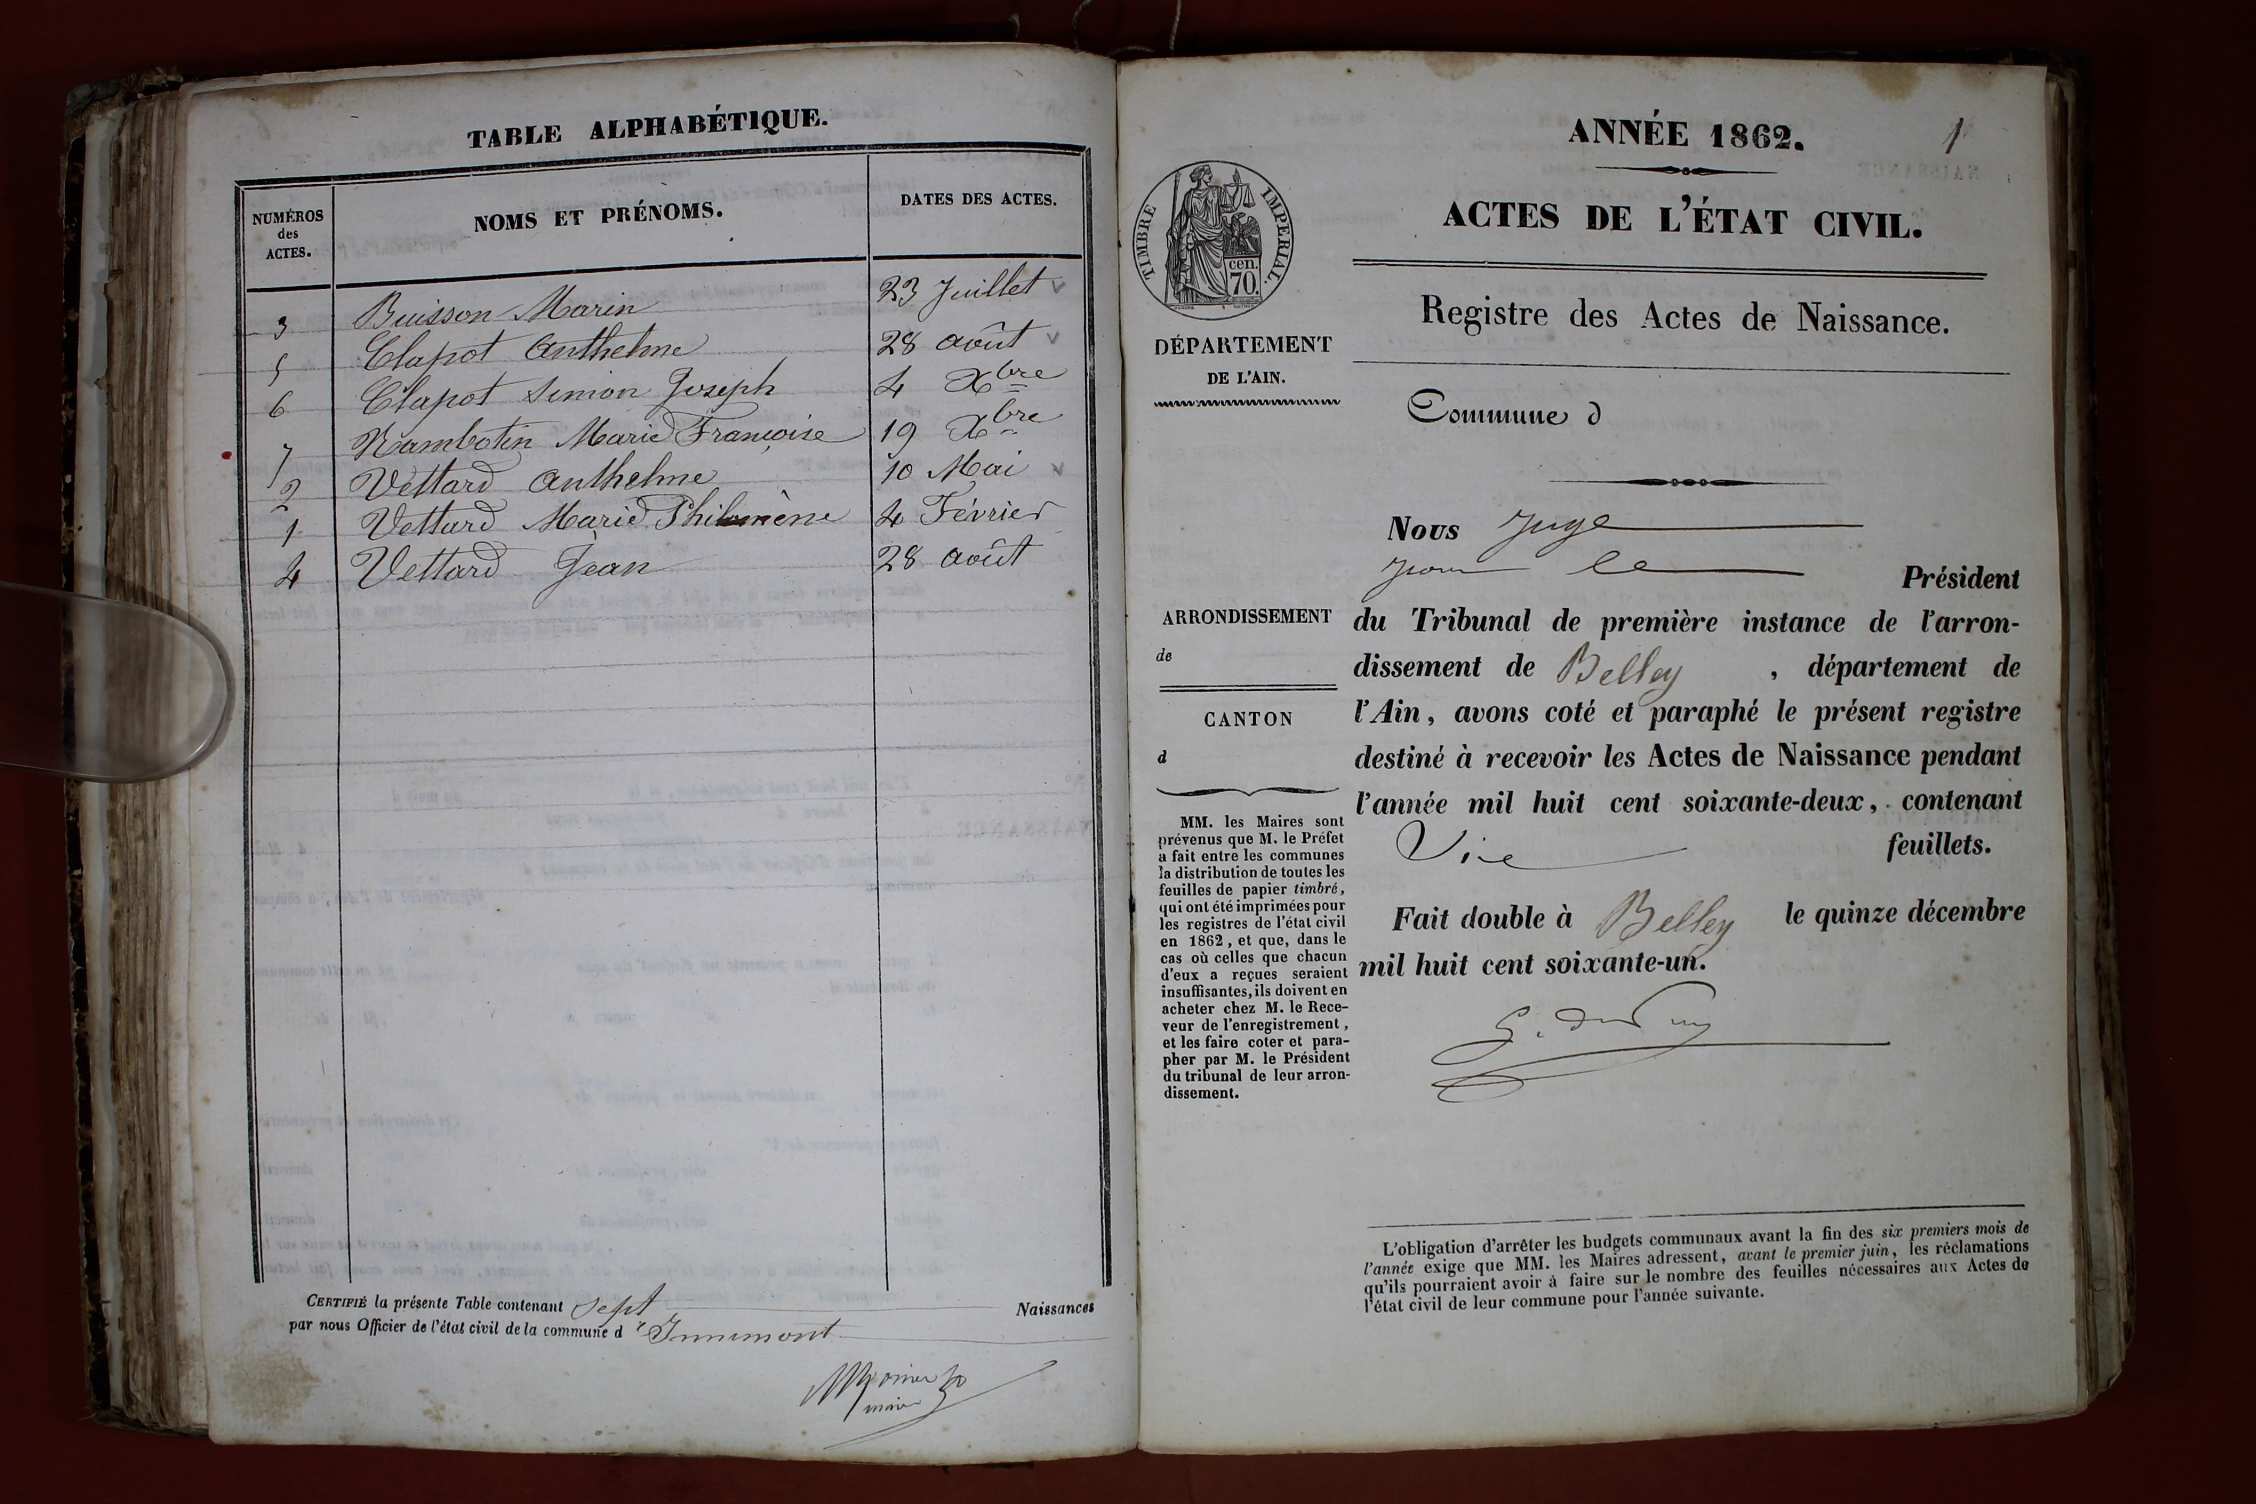 TABLE ALPHABÉTIQUE.
NUMÉROS
des
ACTES.
NOMS ET PRÉNOMS.
DATES DES ACTES.
3 Buisson Marin 23 Juillet
5 Clapot Anthelme 28 août
6 Clapot Simon Joseph 4 Xbre
7 Nambotin Marie Françoise 19 Xbre
2 Vettard Anthelme 10 Mai
1 Vettard Marie Philomène 4 Février
4 Vettard Jean 28 août
CERTIFIÉ la présente Table contenant sept Naissances
par nous Officier de l'état civil de la commune d'Innimont
maire
ANNÉE 1862.
1
ACTES DE L'ÉTAT CIVIL.
TIMBRE IMPERIAL.
cen.
70.
Registre des Actes de Naissance.
DÉPARTEMENT
DE L'AIN.
Commune d
Nous Juge
pour le Président
du Tribunal de première instance de l'arron-
dissement de Belley, département de
l'Ain, avons coté et paraphé le présent registre
destiné à recevoir les Actes de Naissance pendant
l'année mil huit cent soixante-deux, contenant
feuillets.
Fait double à Belley le quinze décembre
mil huit cent soixante-un.
ARRONDISSEMENT
de
CANTON
d
MM. les Maires sont
prévenus que M. le Préfet
a fait entre les communes
la distribution de toutes les
feuilles de papier timbré,
qui ont été imprimées pour
les registres de l'état civil
en 1862, et que, dans le
cas où celles que chacun
d'eux a reçues seraient
insuffisantes, ils doivent en
acheter chez M. le Rece-
veur de l'enregistrement,
et les faire coter et para-
pher par M. le Président
du tribunal de leur arron-
dissement.
L'obligation d'arrêter les budgets communaux avant la fin des six premiers mois de
l'année exige que MM. les Maires adressent, avant le premier juin, les réclamations
qu'ils pourraient avoir à faire sur le nombre des feuilles nécessaires aux Actes de
l'état civil de leur commune pour l'année suivante.